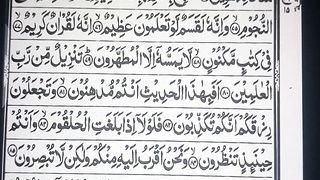 النُّجُوْمِ ﴿۷۵﴾ وَاِنَّهٗ لَقَسَمٌ لَّوْ تَعْلَمُوْنَ عَظِيْمٌ ﴿۷۶﴾ اِنَّهٗ لَقُرْاٰنٌ كَرِيْمٌ ﴿۷۷﴾
فِيْ كِتٰبٍ مَّكْنُوْنٍ ﴿۷۸﴾ لَّا يَمَسُّهٗۤ اِلَّا الْمُطَهَّرُوْنَ ﴿۷۹﴾ تَنْزِيْلٌ مِّنْ رَّبِّ
الْعٰلَمِيْنَ ﴿۸۰﴾ اَفَبِهٰذَا الْحَدِيْثِ اَنْتُمْ مُّدْهِنُوْنَ ﴿۸۱﴾ وَتَجْعَلُوْنَ
رِزْقَكُمْ اَنَّكُمْ تُكَذِّبُوْنَ ﴿۸۲﴾ فَلَوْلَاۤ اِذَا بَلَغَتِ الْحُلْقُوْمَ ﴿۸۳﴾ وَاَنْتُمْ
حِيْنَئِذٍ تَنْظُرُوْنَ ﴿۸۴﴾ وَنَحْنُ اَقْرَبُ اِلَيْهِ مِنْكُمْ وَلٰكِنْ لَّا تُبْصِرُوْنَ ﴿۸۵﴾